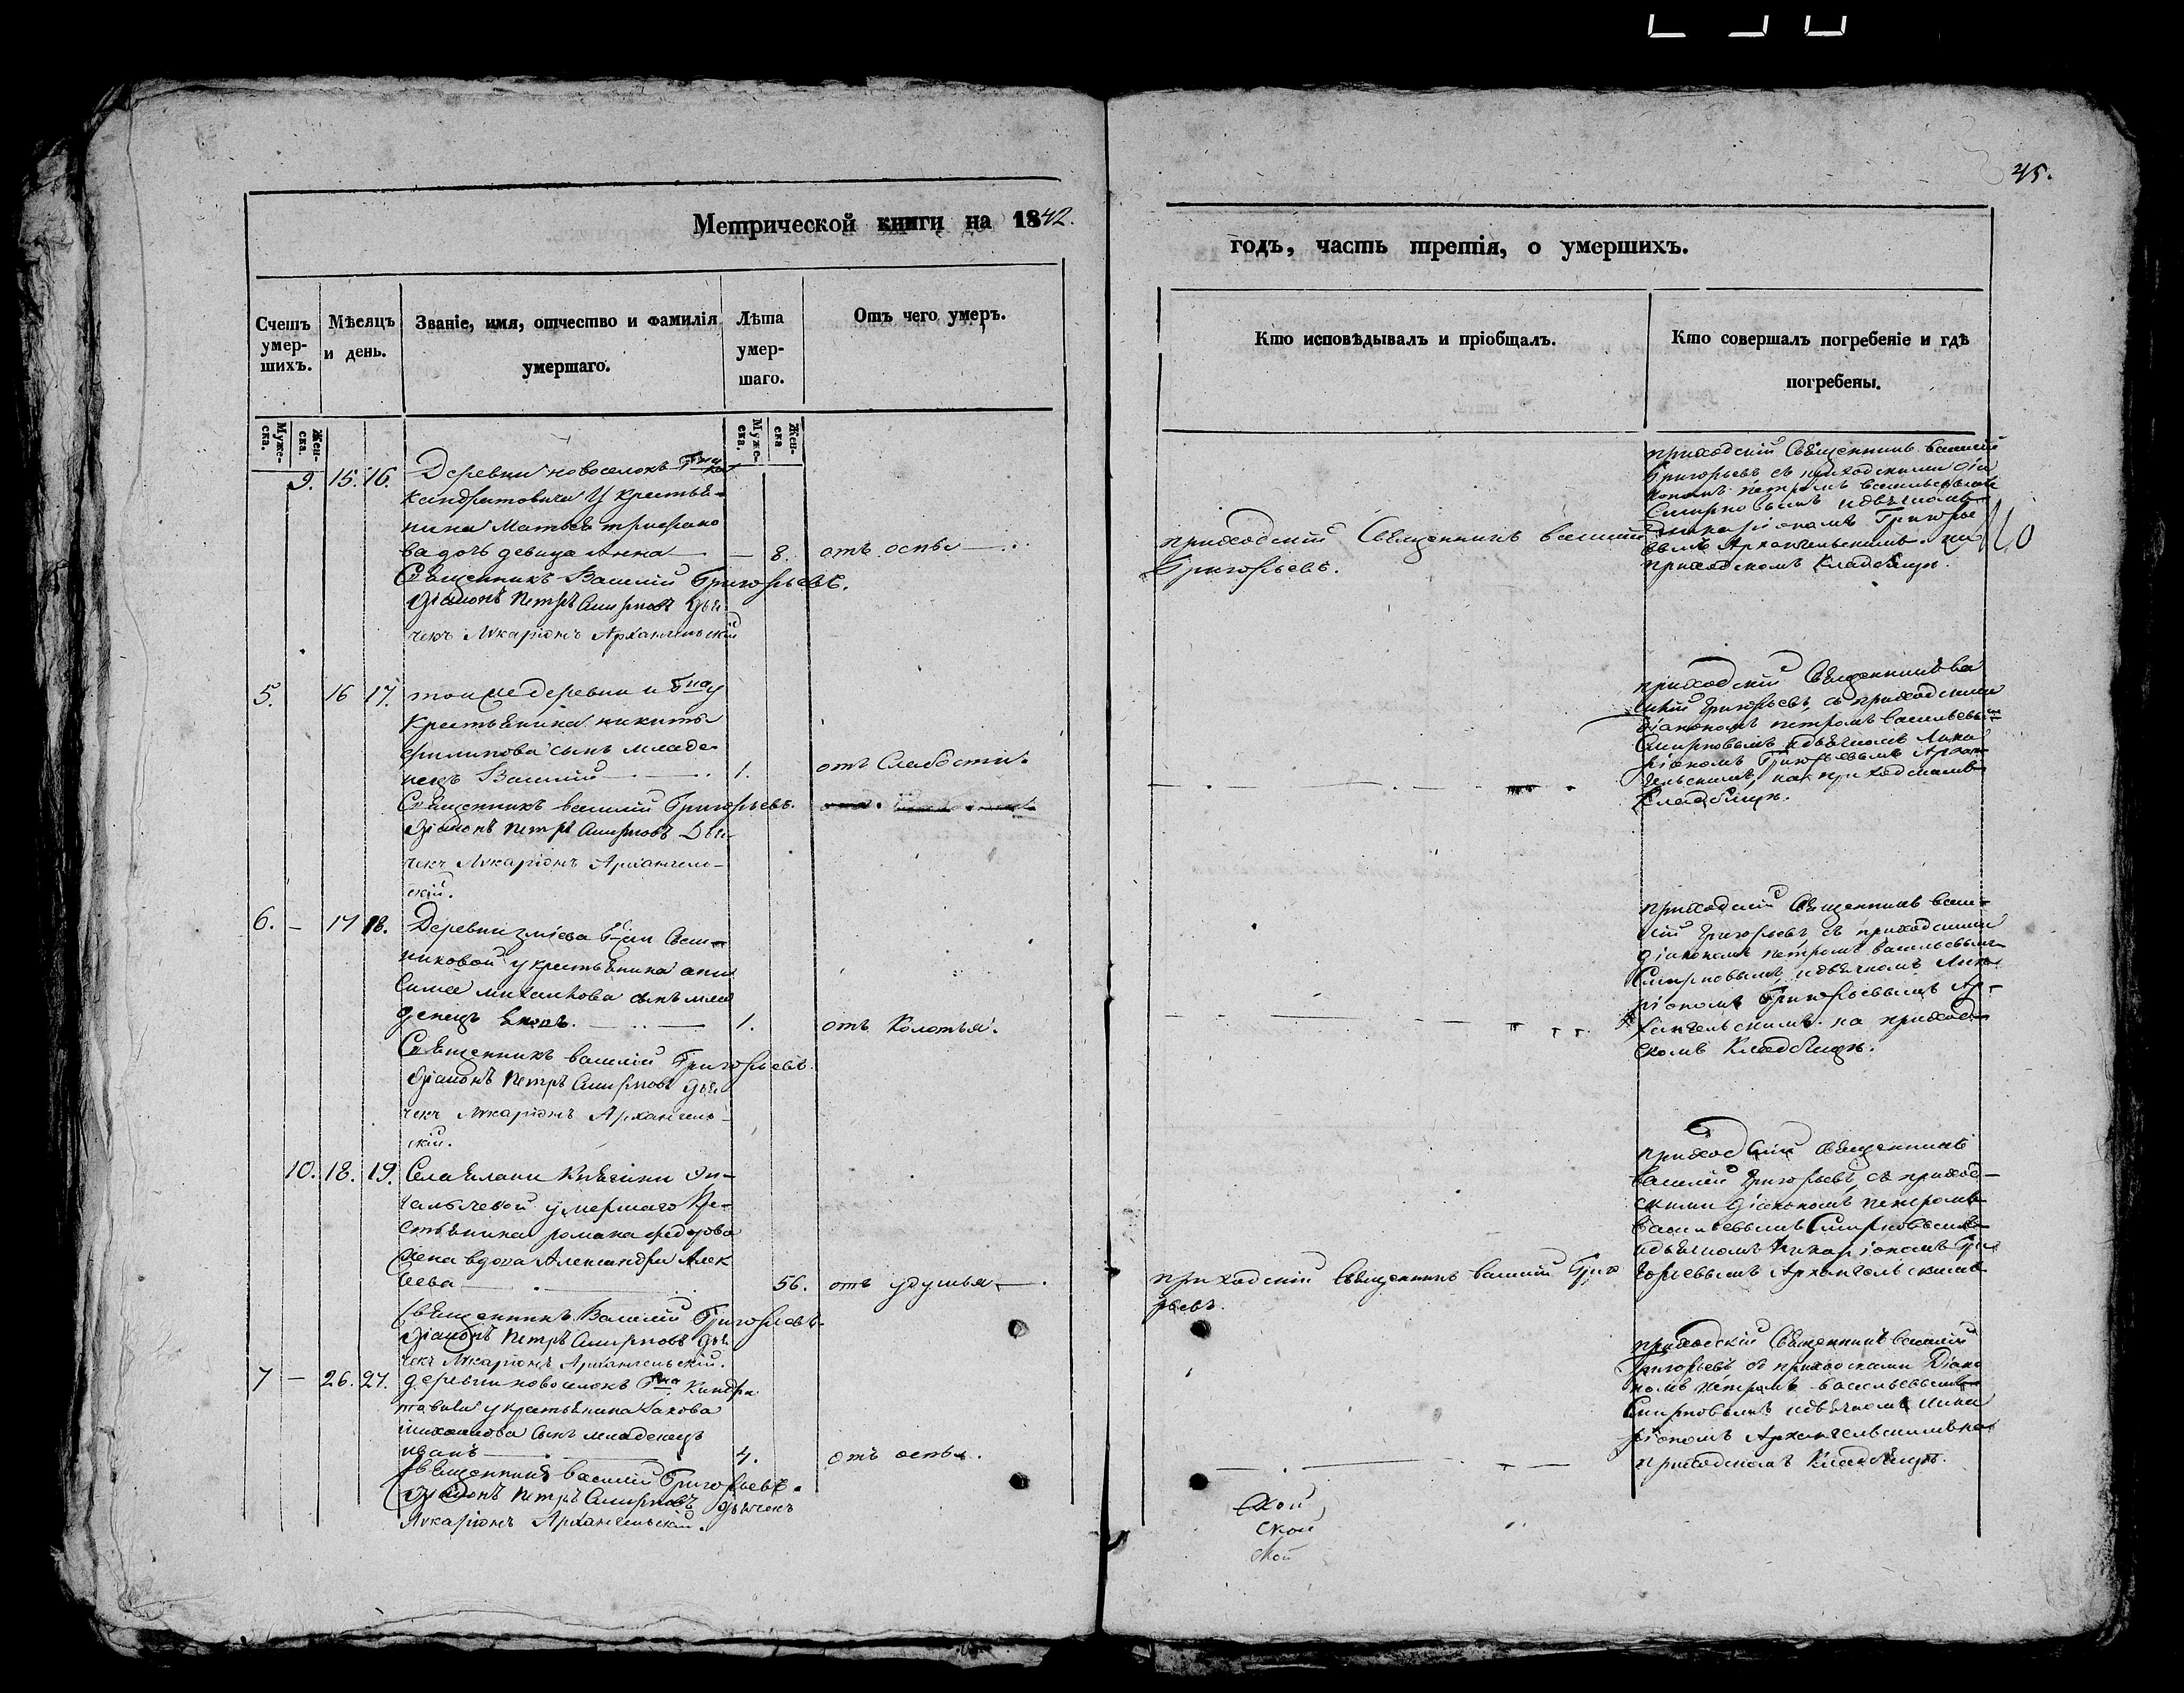 45.
Метрической книги на 1842.
годъ, часть третія, о умершихъ.
Счетъ умер-
шихъ.
Мѣсяцъ
и день.
Званіе, имя, отчество и фамилія
умершаго.
Лѣта
умер-
шаго.
Отъ чего умеръ.
Кто исповѣдывалъ и пріобщалъ.
Кто совершалъ погребеніе и гдѣ
погребены.
Муже-
ска.
Жен-
ска.
Муже-
ска.
Жен-
ска
9. 15. 16. Деревни новоселокъ Гна
кандратовича У крестья-
нина Матвея трифано
ва дочь девица Анна — — 8 отъ оспы
Священникъ Василій Григорьевъ.
Діаконъ Петръ Смирновъ Дья-
чекъ Иларіонъ Архангельскій
приходскій Священникъ василий
Григорьевъ.
приходскій Священникъ василий
Григорьевъ съ приходскими діа
кономъ петромъ васильевымъ
Смирновымъ идьячкомъ
Григорье
вымъ Архангельскимъ. на
приходскомъ Кладбищѣ.
5. 16 17. тоиже деревни и Гна у
Крестьянина никиты
филипова сынъ младе-
нецъ Василий — 1. отъ Слабости.
Священникъ василий Григорьевъ.
Діаконъ Петръ Смирновъ Дья-
чекъ Иларіонъ Архангель-
скій.
приходскій Священникъ ва
силий Григорьевъ, съ приходскими
діакономъ петромъ васильевым
Смирновымъ идьячкомъ Лика
ріономъ Григорьевымъ Архан
гельскимъ, на приходскомъ
Кладбищѣ.
6. — 17 18. Деревни зміева Гжи
никовой укрестьянина ани
симa михаилова сынъ мла
денецъ — 1. отъ Колотья.
Священникъ василий Григорьевъ.
Діаконъ Петръ Смирновъ Дья-
чекъ Иларіонъ Архангель-
скій.
приходскій Священникъ васи-
лій Григорьевъ съ приходскими
діакономъ петромъ васильевымъ
Смирновымъ, идьячкомъ Лика
ріономъ Григорьевымъ Ар-
хангельскимъ. на приход-
скомъ Кладбищѣ.
10. 18. 19. Села Княгини
умершаго Кре-
стьянина романа федорова
жена вдова Александра Алек
сеева — 56. отъ удушья
Священникъ Василій Григорьевъ.
Діаконъ Петръ Смирновъ Дья-
чекъ Иларіонъ Архангельскій.
приходскій Священникъ василий Григо
рьевъ.
приходскій священникъ
василий Григорьевъ, съ приход-
скими діакономъ петромъ
васильевымъ Смирновымъ
идьячкомъ Ликаріономъ Гри
горьевымъ Архангельскимъ
7 — 26. 27. деревни новоселокъ Гна Кандра
товича укрестьянина Іакова
михаилова сынъ младенецъ
иванъ — 4. отъ оспы.
Священникъ Василий Григорьевъ.
Діаконъ Петръ Смирновъ дьячекъ
Иларіонъ Архангельскій.
приходскій Священникъ василий
Григорьевъ съ приходскими Діако
номъ петромъ васильевымъ
Смирновымъ идьячкомъ Лика
ріономъ Архангельскимъ на
приходскомъ Кладбищѣ.
ской
ской